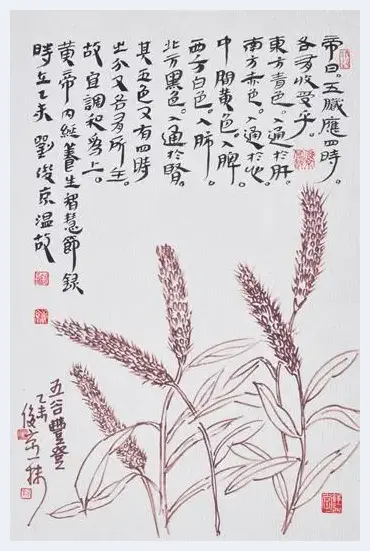 帝曰。五臟應四時。
各有收受乎。
東方青色。入通於肝。
南方赤色。入通於心。
中間黃色。入脾。
西方白色。入肺。
北方黑色。入通於腎。
其五色又有四時
之分又各有所主。
故宜調和為上。
黃帝內經養生智慧節録
時在乙未 劉俊京温故
五谷豐登
乙未
俊京一